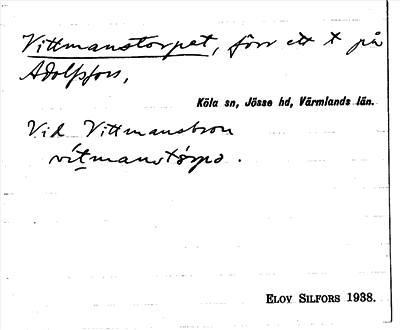 Vittmanstorpet, förr ett t på
Adolfsfors,
Köla sn, Jösse hd, Värmlands län.
Vid Vittmansbron
vítmanstòrpə.
ELOV SILFORS 1938.